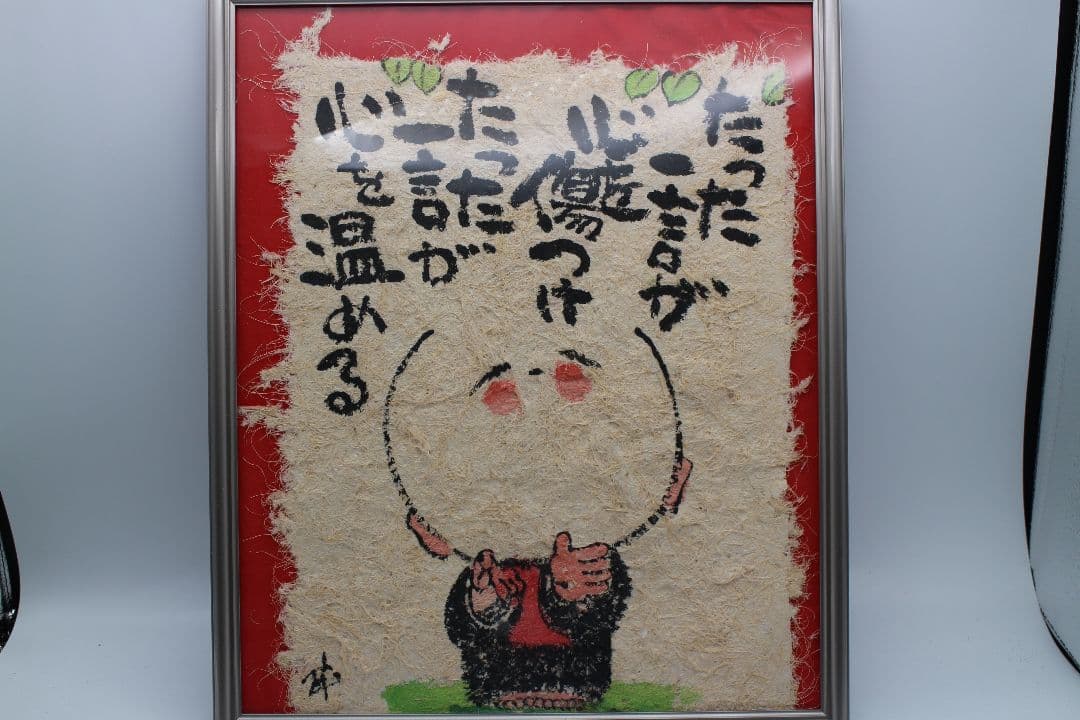 たった
一言が
心
傷つけ
たった
一言が
心を
温める